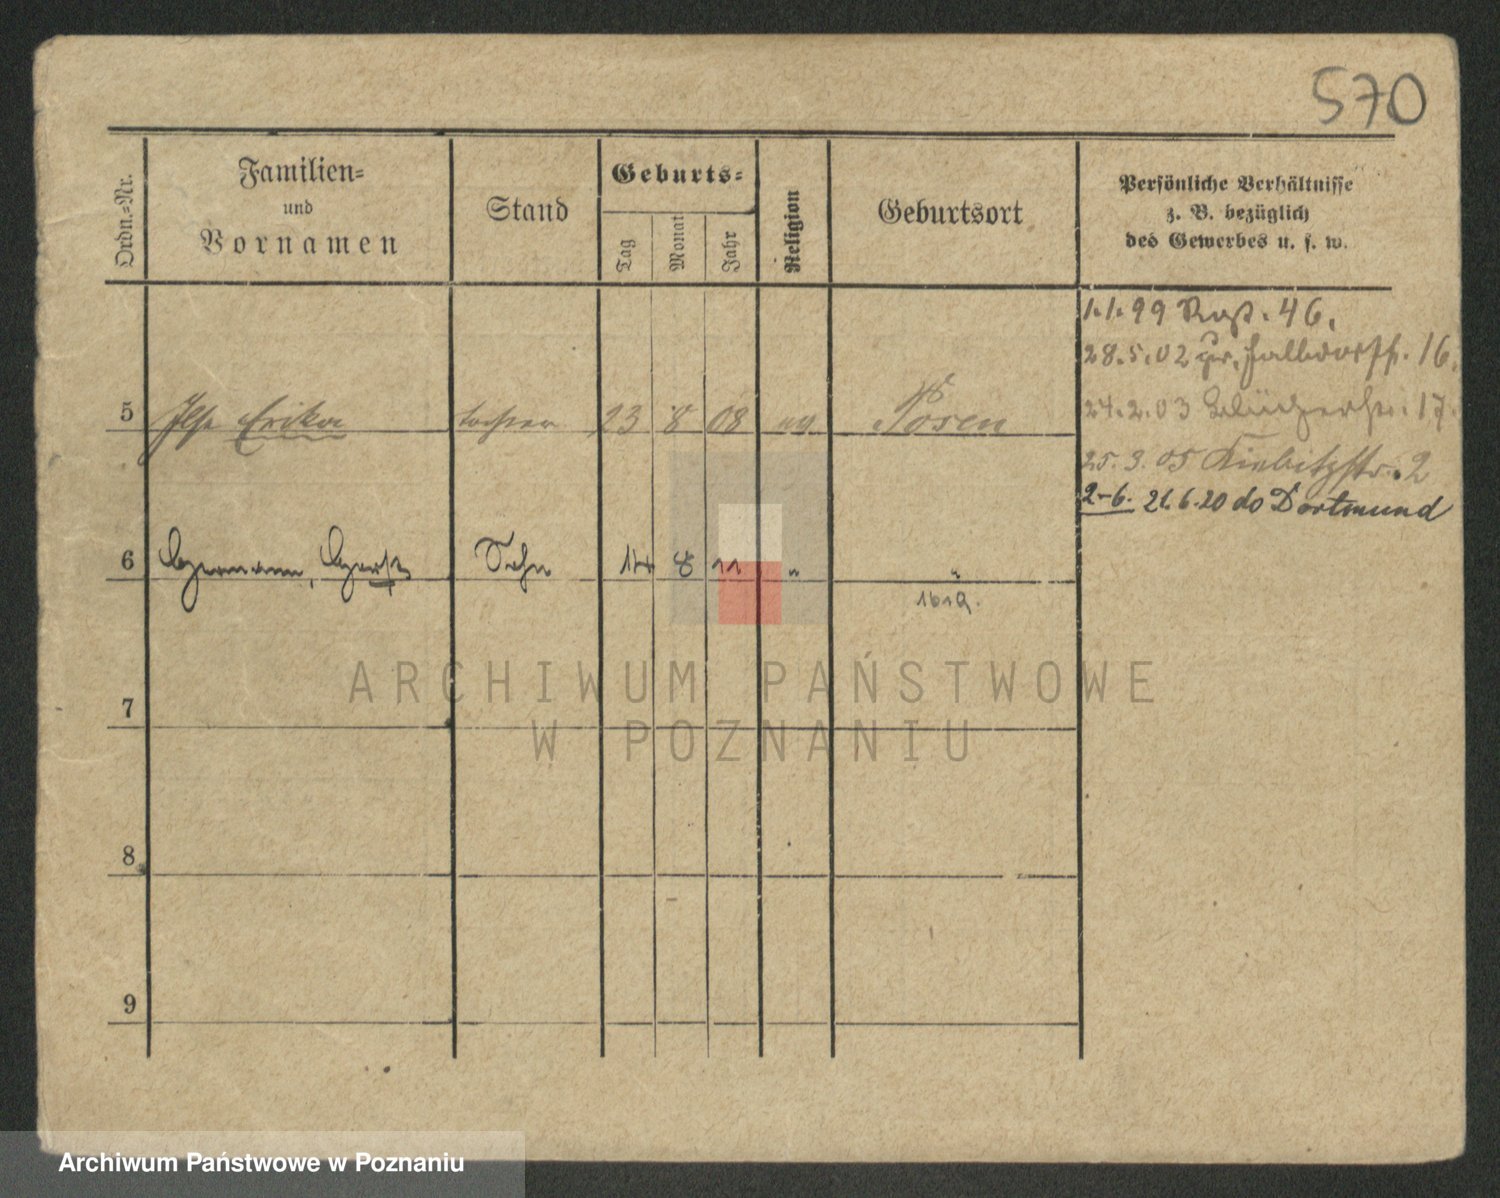 570
Ordn.-Nr.
Familien-
und
Vornamen
Stand
Geburts-
Tag
Monat
Jahr
Religion
Geburtsort
Persönliche Verhältnisse
z. B. bezüglich
des Gewerbes u. s. w.
1.1.99 46.
28.5.02 gr. 16.
24.2.03 Blücherstr. 17.
25.3.05 Kiebitzstr. 2
2-6. 21.6.20 do Dortmund
5 Ilse Erika Tochter 23 8 08 ev Posen
6 Hermann, Horst Sohn 14 8 11 " "
7
8
9
ARCHIWUM PAŃSTWOWE
W POZNANIU
Archiwum Państwowe w Poznaniu